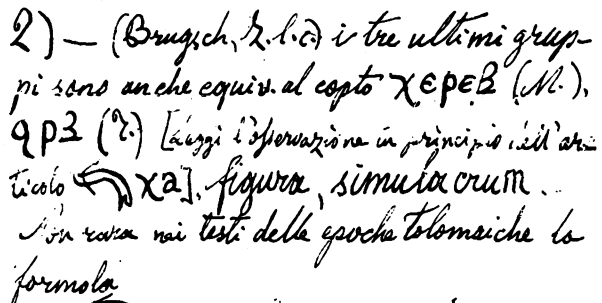 2) — (Brugsch, l. c.) i tre ultimi grup-
pi sono anche equiv. al copto ⲭⲉⲣⲉⲃ (M.),
(T.) [Leggi l'osservazione in principio dell'ar-
ticolo χa], figura, simulacrum.
Non rara nei testi delle epoche tolomaiche la
formola